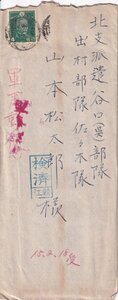 北支派遣谷口(呉)部隊
出村部隊佐々木隊
山本松太郎様
軍事
検済
15.2.18